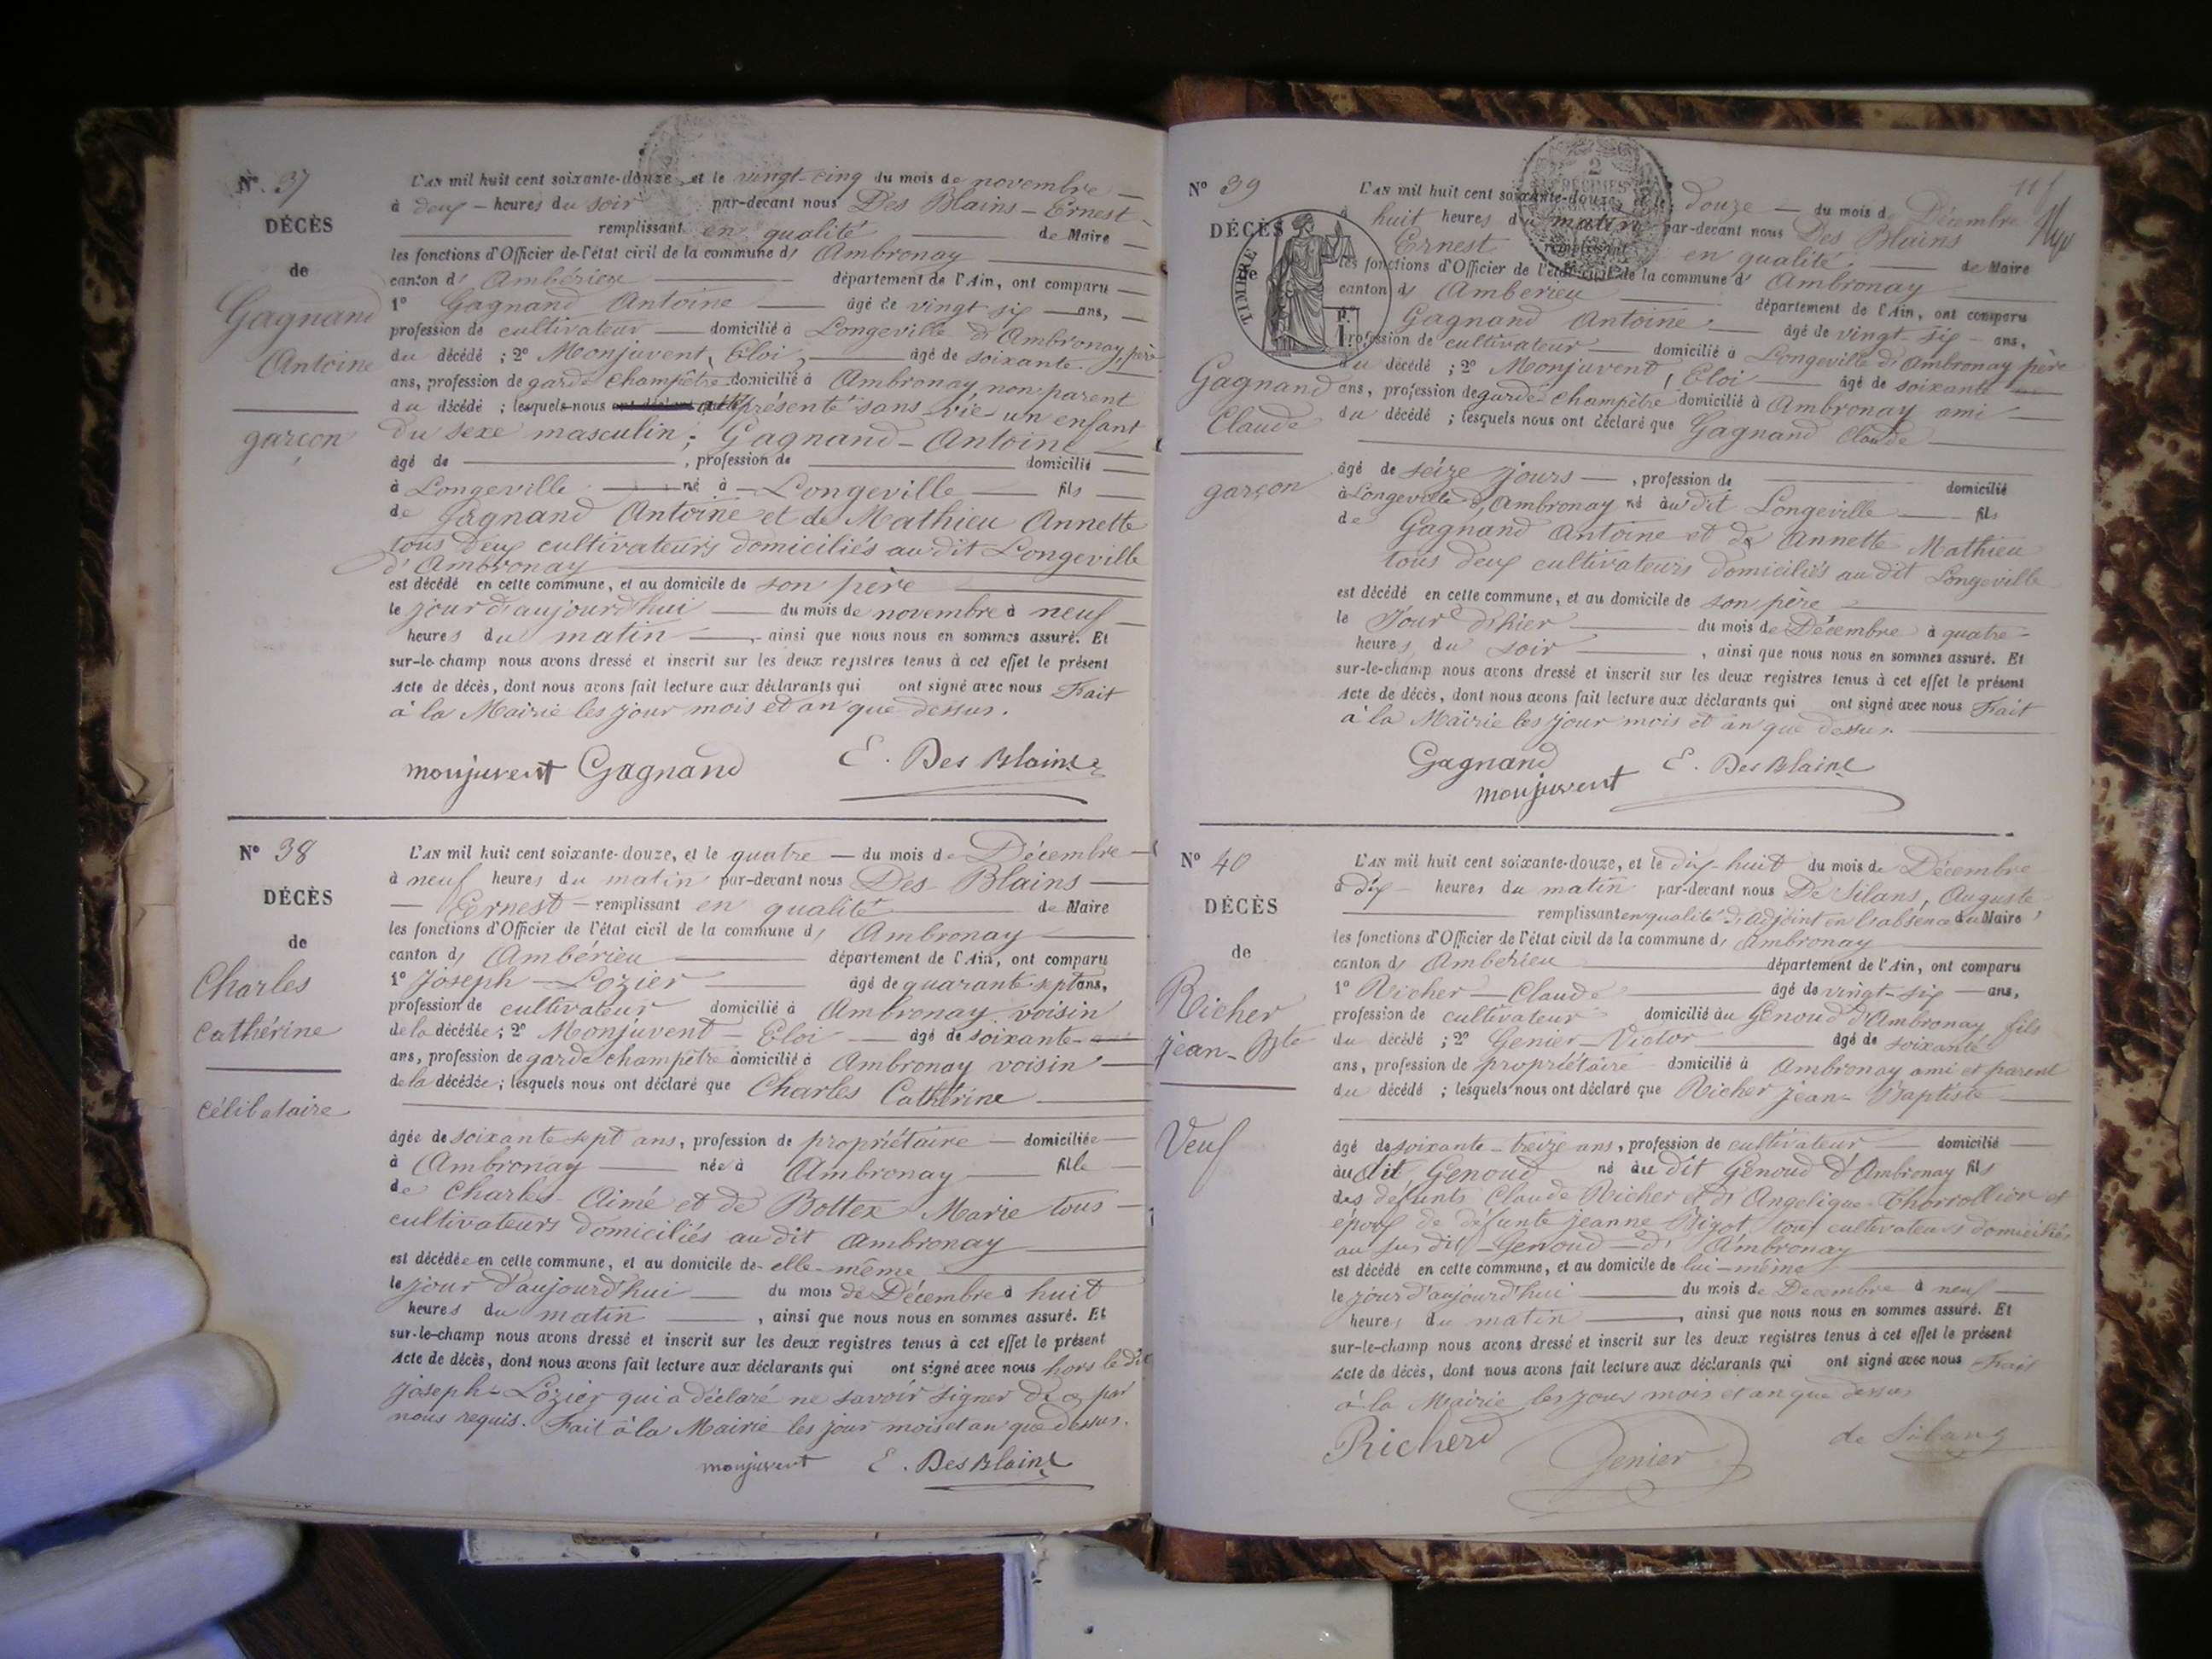 N° 37
DÉCÈS
de
Gagnand
Antoine
garçon
L'AN mil huit cent soixante-douze, et le vingt-cinq du mois de novembre
à deux heures du soir par-devant nous Des Blains - Ernest
remplissant en qualité de Maire
les fonctions d'Officier de l'état civil de la commune d' Ambronay
canton d' Ambérieu département de l'Ain, ont comparu
1° Gagnand Antoine âgé de vingt six ans,
profession de cultivateur domicilié à Longeville d'Ambronay, père
du décédé ; 2° Monjuvent, Eloi, âgé de soixante
ans, profession de garde champêtre domicilié à Ambronay, non parent
du décédé ; lesquels nous ont présenté sans vie un enfant
du sexe masculin; Gagnand - Antoine
âgé de , profession de domicilié
à Longeville né à Longeville fils
de Gagnand Antoine et de Mathieu Annette
tous deux cultivateurs domiciliés au dit Longeville
d'Ambronay
est décédé en cette commune, et au domicile de son père
le jour d'aujourd'hui du mois de novembre à neuf
heures du matin , ainsi que nous nous en sommes assuré. Et
sur-le-champ nous avons dressé et inscrit sur les deux registres tenus à cet effet le présent
Acte de décès, dont nous avons fait lecture aux déclarants qui ont signé avec nous Fait
à la Mairie les jour mois et an que dessus.
monjuvent Gagnand E. Des Blains
N° 38
DÉCÈS
de
Charles
Cathérine
célibataire
L'AN mil huit cent soixante-douze, et le quatre du mois de Décembre
à neuf heures du matin par-devant nous Des Blains
Ernest remplissant en qualité de Maire
les fonctions d'Officier de l'état civil de la commune d' Ambronay
canton d' Ambérieu département de l'Ain, ont comparu
1° Joseph Lozier âgé de quarante sept ans,
profession de cultivateur domicilié à Ambronay voisin
de la décédée ; 2° Monjuvent Eloi âgé de soixante
ans, profession de garde champêtre domicilié à Ambronay voisin
de la décédée ; lesquels nous ont déclaré que Charles Cathérine
âgée de soixante sept ans, profession de propriétaire domiciliée
à Ambronay née à Ambronay fille
de Charles Aimé et de Bottex Marie tous
cultivateurs domiciliés au dit Ambronay
est décédée en cette commune, et au domicile de elle-même
le jour d'aujourd'hui du mois de Décembre à huit
heures du matin , ainsi que nous nous en sommes assuré. Et
sur-le-champ nous avons dressé et inscrit sur les deux registres tenus à cet effet le présent
Acte de décès, dont nous avons fait lecture aux déclarants qui ont signé avec nous hors le dit
Joseph Lozier qui a déclaré ne savoir signer de ce par
nous requis. Fait à la Mairie les jour mois et an que dessus.
monjuvent E. Des Blains
N° 39
DÉCÈS
de
TIMBRE
2
DÉCIMES
Gagnand
Claude
garçon
L'AN mil huit cent soixante-douze, et le douze du mois de Décembre
à huit heures du matin par-devant nous Des Blains
Ernest remplissant en qualité de Maire
les fonctions d'Officier de l'état civil de la commune d' Ambronay
canton d' Ambérieu département de l'Ain, ont comparu
1° Gagnand Antoine âgé de vingt-six ans,
profession de cultivateur domicilié à Longeville d'Ambronay père
du décédé ; 2° Monjuvent, Eloi âgé de soixante
ans, profession de garde champêtre domicilié à Ambronay ami
du décédé ; lesquels nous ont déclaré que Gagnand Claude
âgé de seize jours , profession de domicilié
à Longeville d'Ambronay né au dit Longeville fils
de Gagnand Antoine et de Annette Mathieu
tous deux cultivateurs domiciliés au dit Longeville
est décédé en cette commune, et au domicile de son père
le Jour d'hier du mois de Décembre à quatre
heures du soir , ainsi que nous nous en sommes assuré. Et
sur-le-champ nous avons dressé et inscrit sur les deux registres tenus à cet effet le présent
Acte de décès, dont nous avons fait lecture aux déclarants qui ont signé avec nous Fait
à la Mairie les jour mois et an que dessus.
Gagnand E. Des Blains
monjuvent
N° 40
DÉCÈS
de
Richer
jean-Bte
Veuf
L'AN mil huit cent soixante-douze, et le dix-huit du mois de Décembre
à dix heures du matin par-devant nous De Silans, Auguste
remplissant en qualité d'adjoint en l'absence du Maire,
les fonctions d'Officier de l'état civil de la commune d' Ambronay
canton d' Ambérieu département de l'Ain, ont comparu
1° Richer Claude âgé de vingt-six ans,
profession de cultivateur domicilié au Genoud d'Ambronay fils
du décédé ; 2° Genier Victor âgé de soixante
ans, profession de propriétaire domicilié à Ambronay ami et parent
du décédé ; lesquels nous ont déclaré que Richer jean-Baptiste
âgé de soixante-treize ans, profession de cultivateur domicilié
au dit Genoud né au dit Genoud d'Ambronay fils
des défunts Claude Richer et d' Angelique et
époux de défunte jeanne Bigot tous cultivateurs domiciliés
au sus dit Genoud d' Ambronay
est décédé en cette commune, et au domicile de lui-même
le jour d'aujourd'hui du mois de Décembre à neuf
heures du matin , ainsi que nous nous en sommes assuré. Et
sur-le-champ nous avons dressé et inscrit sur les deux registres tenus à cet effet le présent
Acte de décès, dont nous avons fait lecture aux déclarants qui ont signé avec nous Fait
à la Mairie les jour mois et an que dessus
Richerd Genier de Silans